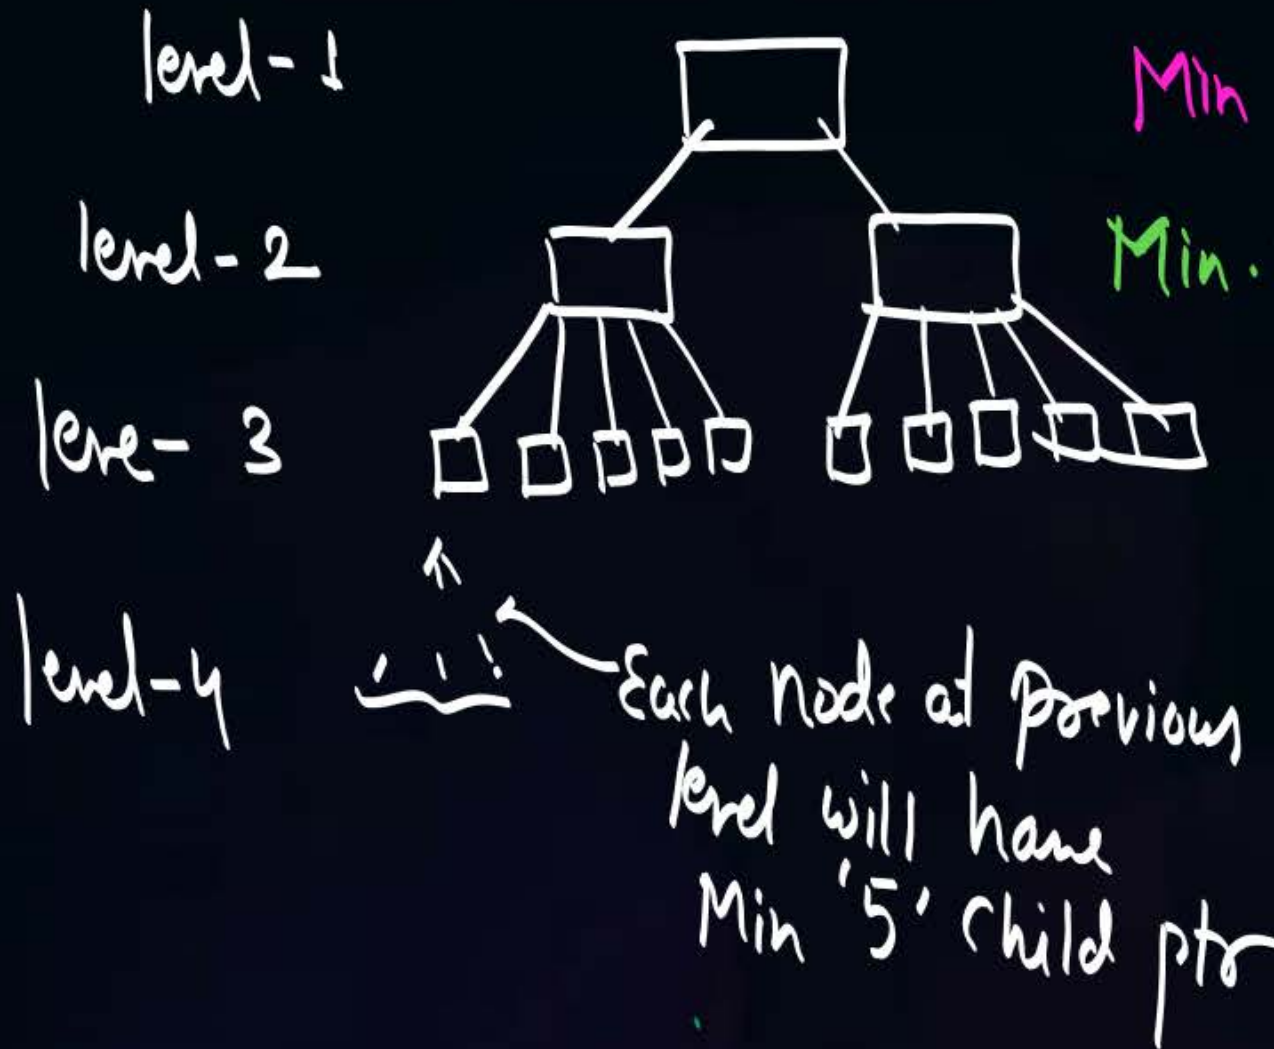 level - 1
Min
level - 2
Min.
leve - 3
level - 4
Each node at previous
level will have
Min '5' child ptr